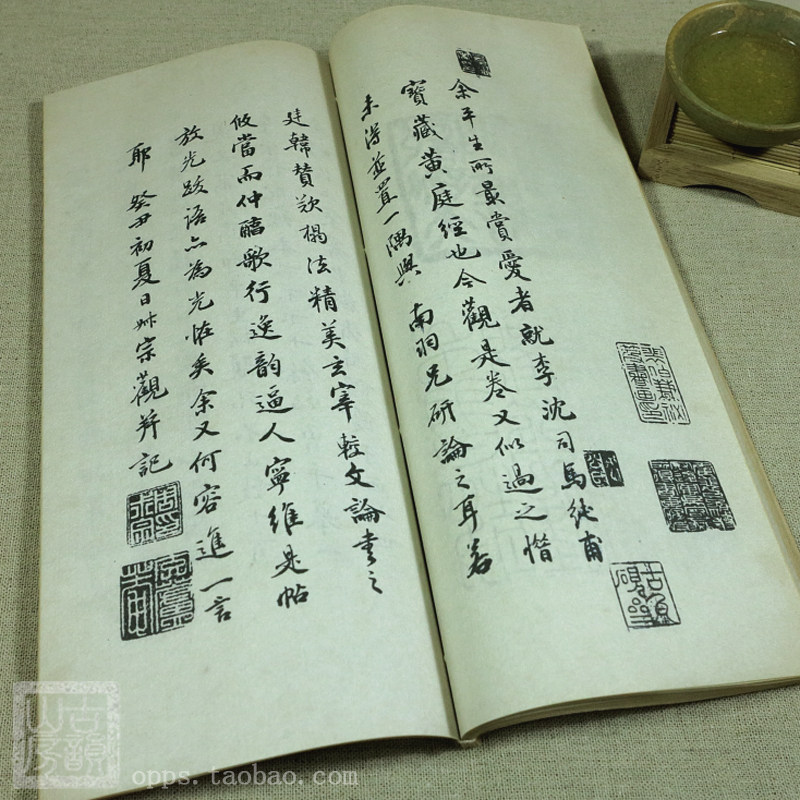 余平生所最賞愛者就李沈司馬純甫
寶藏黃庭經也今觀是卷又似過之惜
未得並置一隅與 南羽兄研論之耳若
廷韓贊歎搨法精美玄宰較文論書之
攸當而仲醕歌行逸韵逼人寧維是帖
放光跋語亦為光怪矣余又何容進一言
耶 癸丑初夏日 宗觀并記
古韻山房
opps.taobao.com